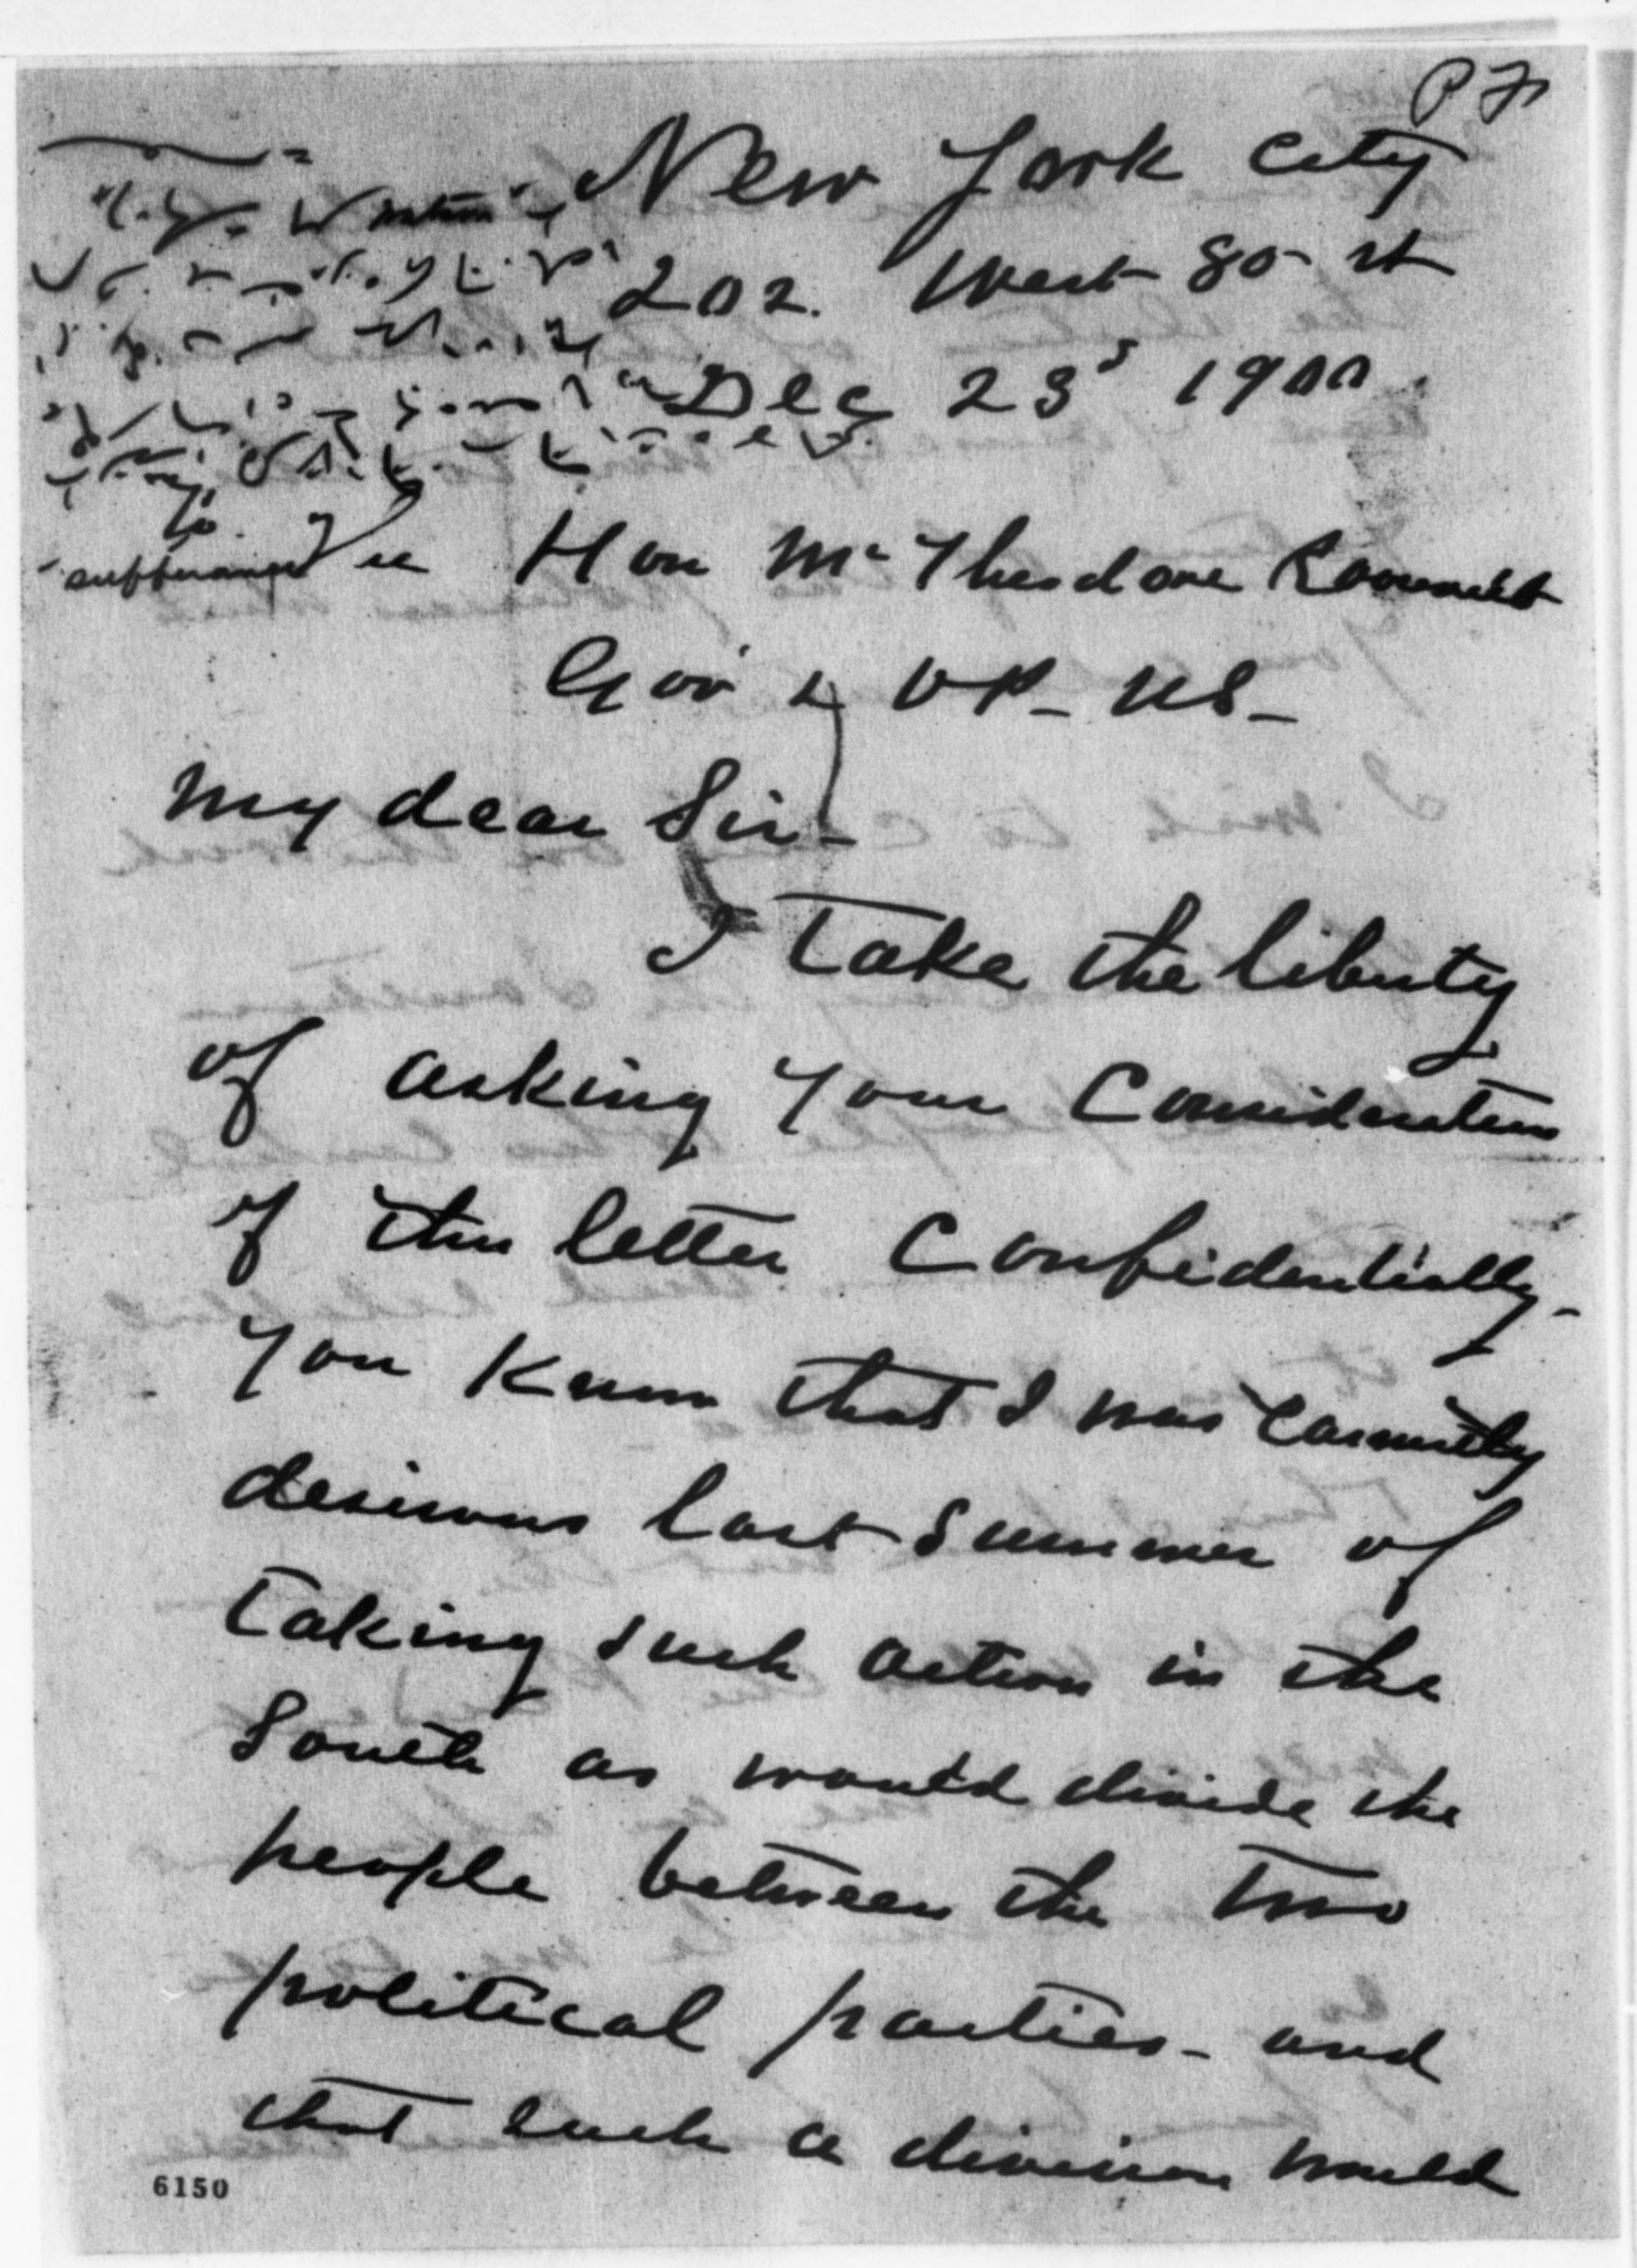 P F
New York City
202. West 80 st
Dec 23 1900
Hon Mr Theodore Roosevelt
Gov & VP - US -
My dear Sir -
I take the liberty
of asking your Consideration
of this letter Confidentially -
You Know that I was earnestly
desirous last summer of
taking such action in the
South as would divide the
people between the two
political parties - and
that such a division would
6150